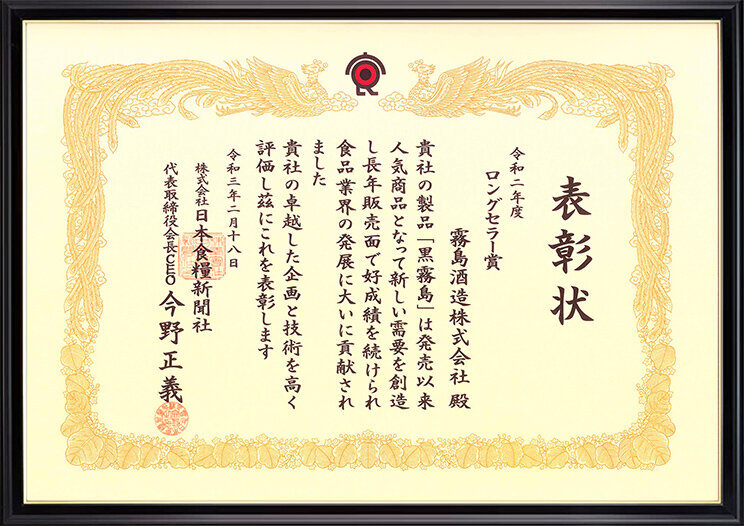 表彰状
霧島酒造株式会社 殿
令和二年度
ロングセラー賞
貴社の製品「黒霧島」は発売以来
人気商品となって新しい需要を創造
し長年販売面で好成績を続けられ
食品業界の発展に大いに貢献され
ました
貴社の卓越した企画と技術を高く
評価し茲にこれを表彰します
令和三年二月十八日
株式会社日本食糧新聞社
代表取締役会長CEO 今野正義